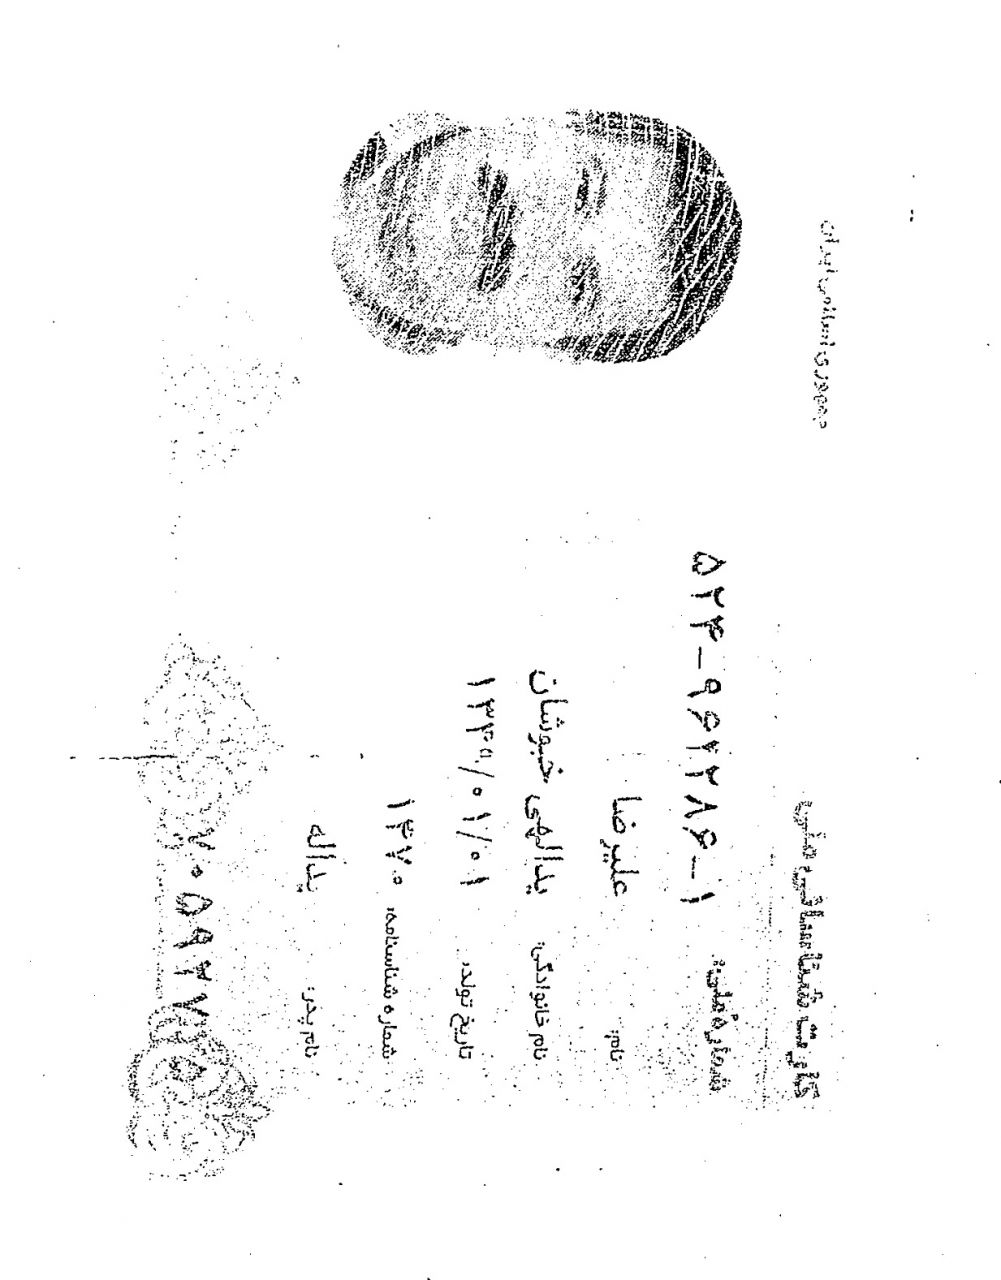 جمهوری اسلامی ایران
کارت شناسائی ملی
شماره ملی: ۵۲۴-۹۶۲۲۸۶-۱
نام: علیرضا
نام خانوادگی: یدالهی خبوشان
تاریخ تولد: ۱۳۴۵/۰۱/۰۱
شماره شناسنامه: ۱۴۷۰
نام پدر: یداله